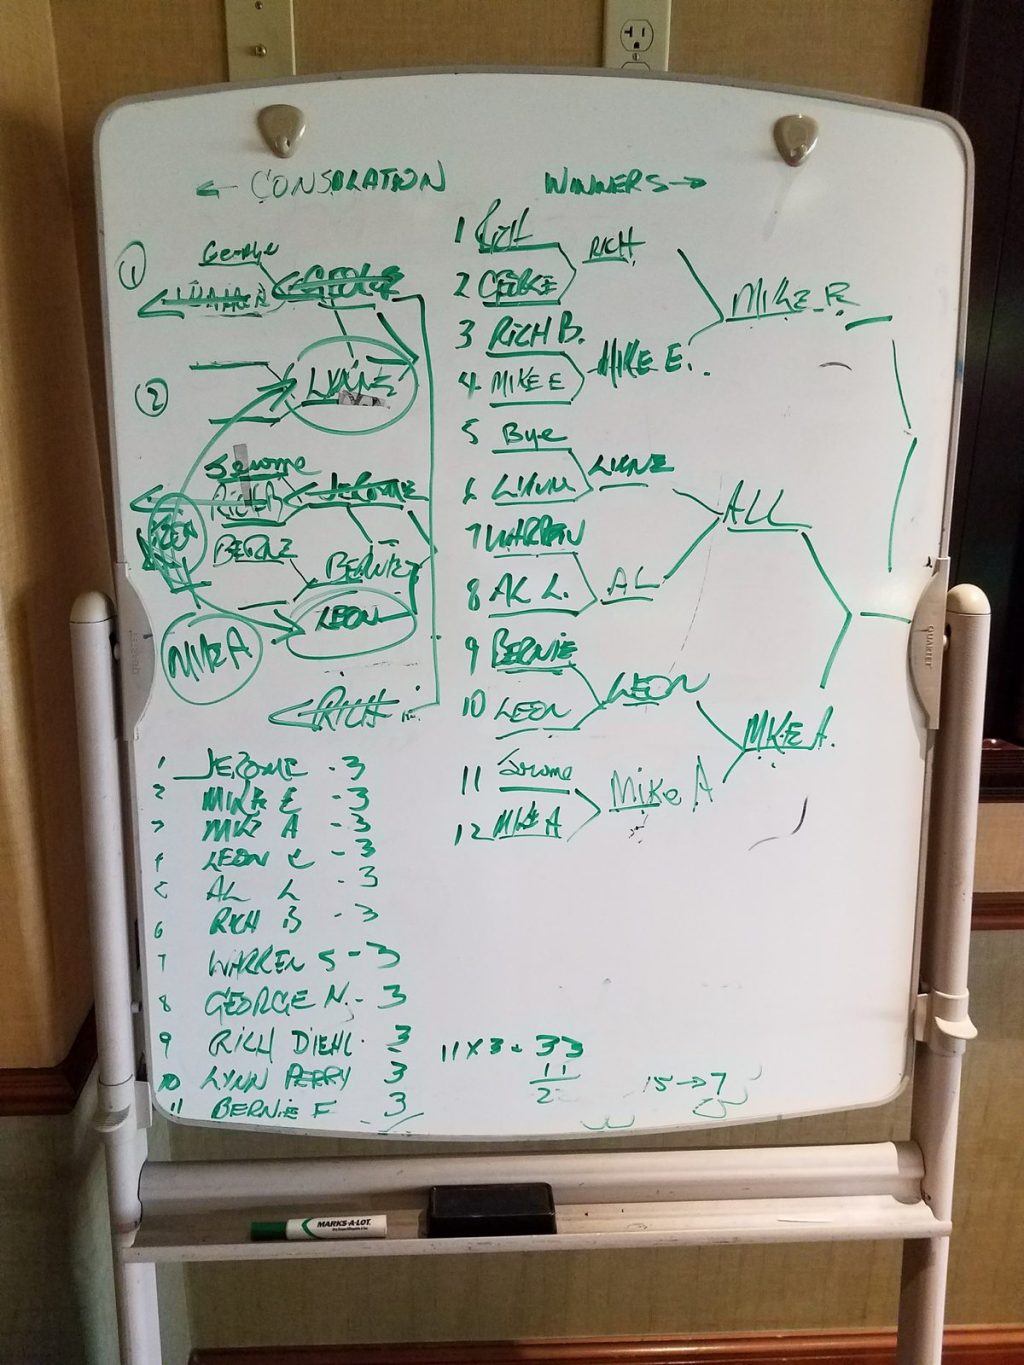 ← CONSOLATION
WINNERS →
①
George
GEORGE
②
LYNNE
Jerome
RICH B
JEROME
BERNIE
BERNIE
LEON
MIKE A
RICH
1 RICH
2 GEORGE
3 RICH B.
4 MIKE E
5 Bye
6 LYNNE
7 WARREN
8 AL L.
9 BERNIE
10 LEON
11 Jerome
12 MIKE A
RICH
MIKE E.
LYNNE
AL
LEON
MIKE A
MIKE E
AL L
MIKE A.
1 JEROME - 3
2 MIKE E - 3
3 MIKE A - 3
4 LEON C - 3
5 AL L - 3
6 RICH B - 3
7 WARREN S - 3
8 GEORGE N. - 3
9 RICH DIEHL 3
10 LYNN PERRY 3
11 BERNIE F 3
11 X 3 = 33
11
2
15 → 7
MARKS-A-LOT
QUARTET